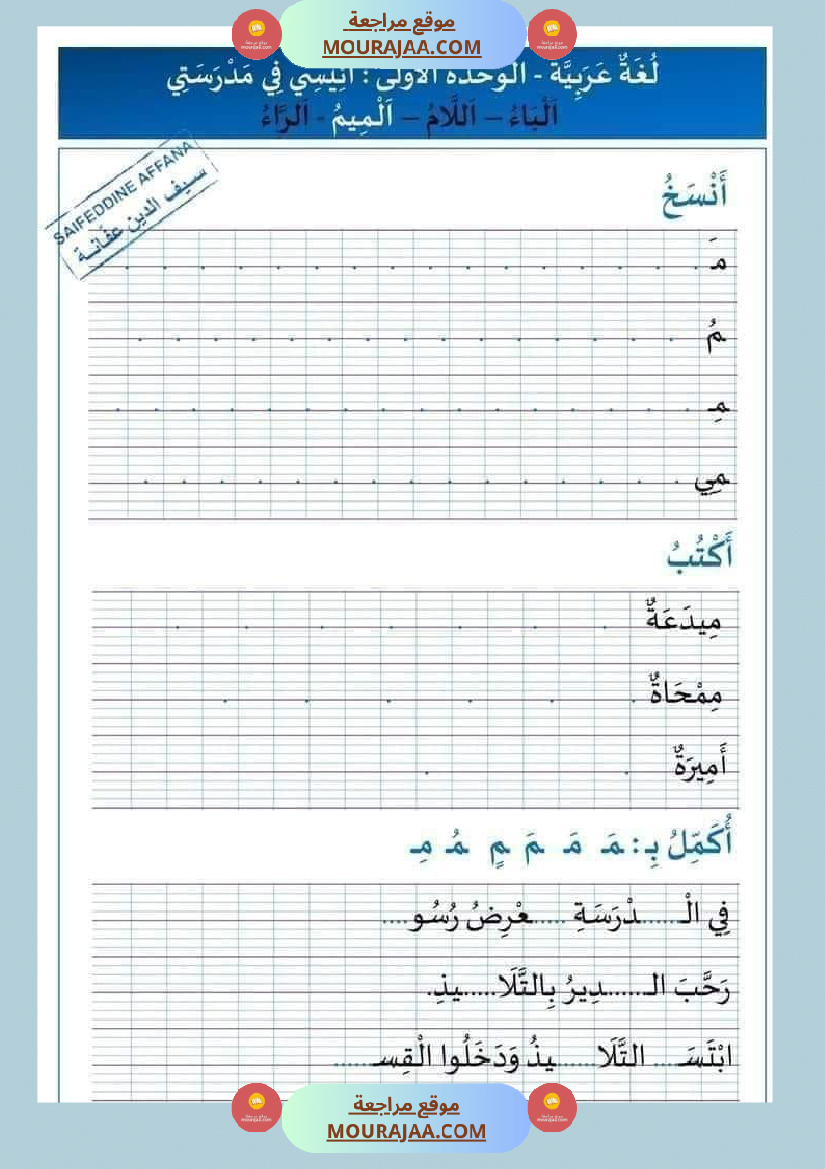 موقع مراجعة
MOURAJAA.COM
لُغَةٌ عَرَبِيَّة - الوحدة الأولى : أَنِيسِي فِي مَدْرَسَتِي
اَلْبَاءُ – اَللَّامُ – اَلْمِيمُ - اَلرَّاءُ
SAIFEDDINE AFFANA
سيف الدين عفانة
أَنْسَخُ
مَـ
مُـ
مِـ
مِي
أَكْتُبُ
مِيدَعَةٌ
مِمْحَاةٌ
أَمِيرَةٌ
أُكَمِّلُ بِـ : مَـ مَـ ـمَ ـمٍ ـمُـ مِـ
فِي الْـ......ـدْرَسَةِ ......ـعْرِضُ رُسُو....
رَحَّبَ الـ.......ـدِيرُ بِالتَّلَا......يذِ.
ابْتَسَـ.... التَّلَا.......يذُ وَدَخَلُوا الْقِسـ......
موقع مراجعة
MOURAJAA.COM